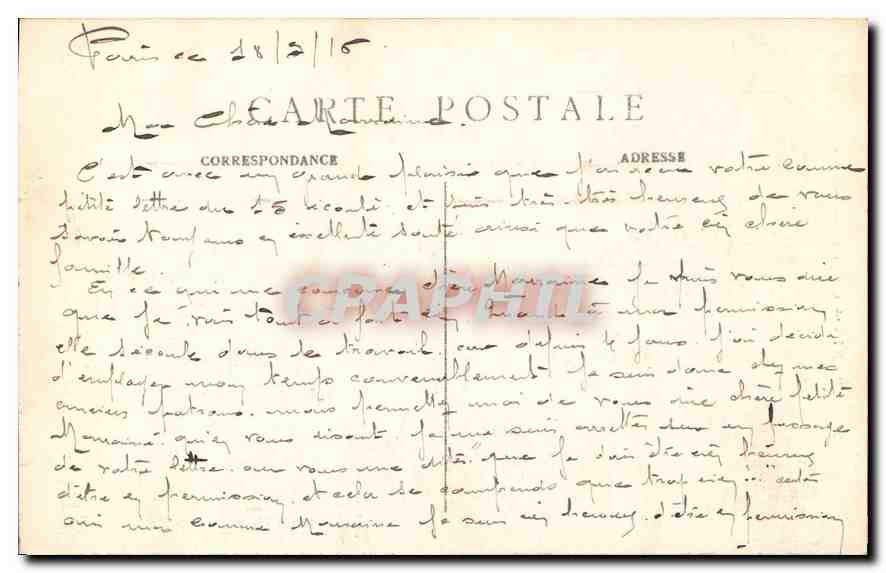 Paris ce 18/2/16
CARTE POSTALE
Ma Chère Marraine.
CORRESPONDANCE
ADRESSE
C'est avec un grand plaisir que j'ai reçu votre
petite lettre du 15 écoulé. et suis très très heureux de vous
savoir toujours en excellente santé ainsi que votre chère
famille.
En ce qui me concerne chère Marraine je puis vous dire
que je vais tout a fait bien quand à ma permission
elle s'écoule dans le travail. car depuis 4 jours j'ai décidé
d'employer mon temps convenablement. Je suis donc chez mes
anciens patrons. mais permettez moi de vous dire chère petite
Marraine qu'en vous lisant. je me suis arrêtés sur un passage
de votre lettre. ou vous me dites " que je dois être bien heureux
d'être en permission, et cela se comprends que trop bien "
oui ma bonne Marraine je suis bien heureux d'être en permission
CPAPHIL